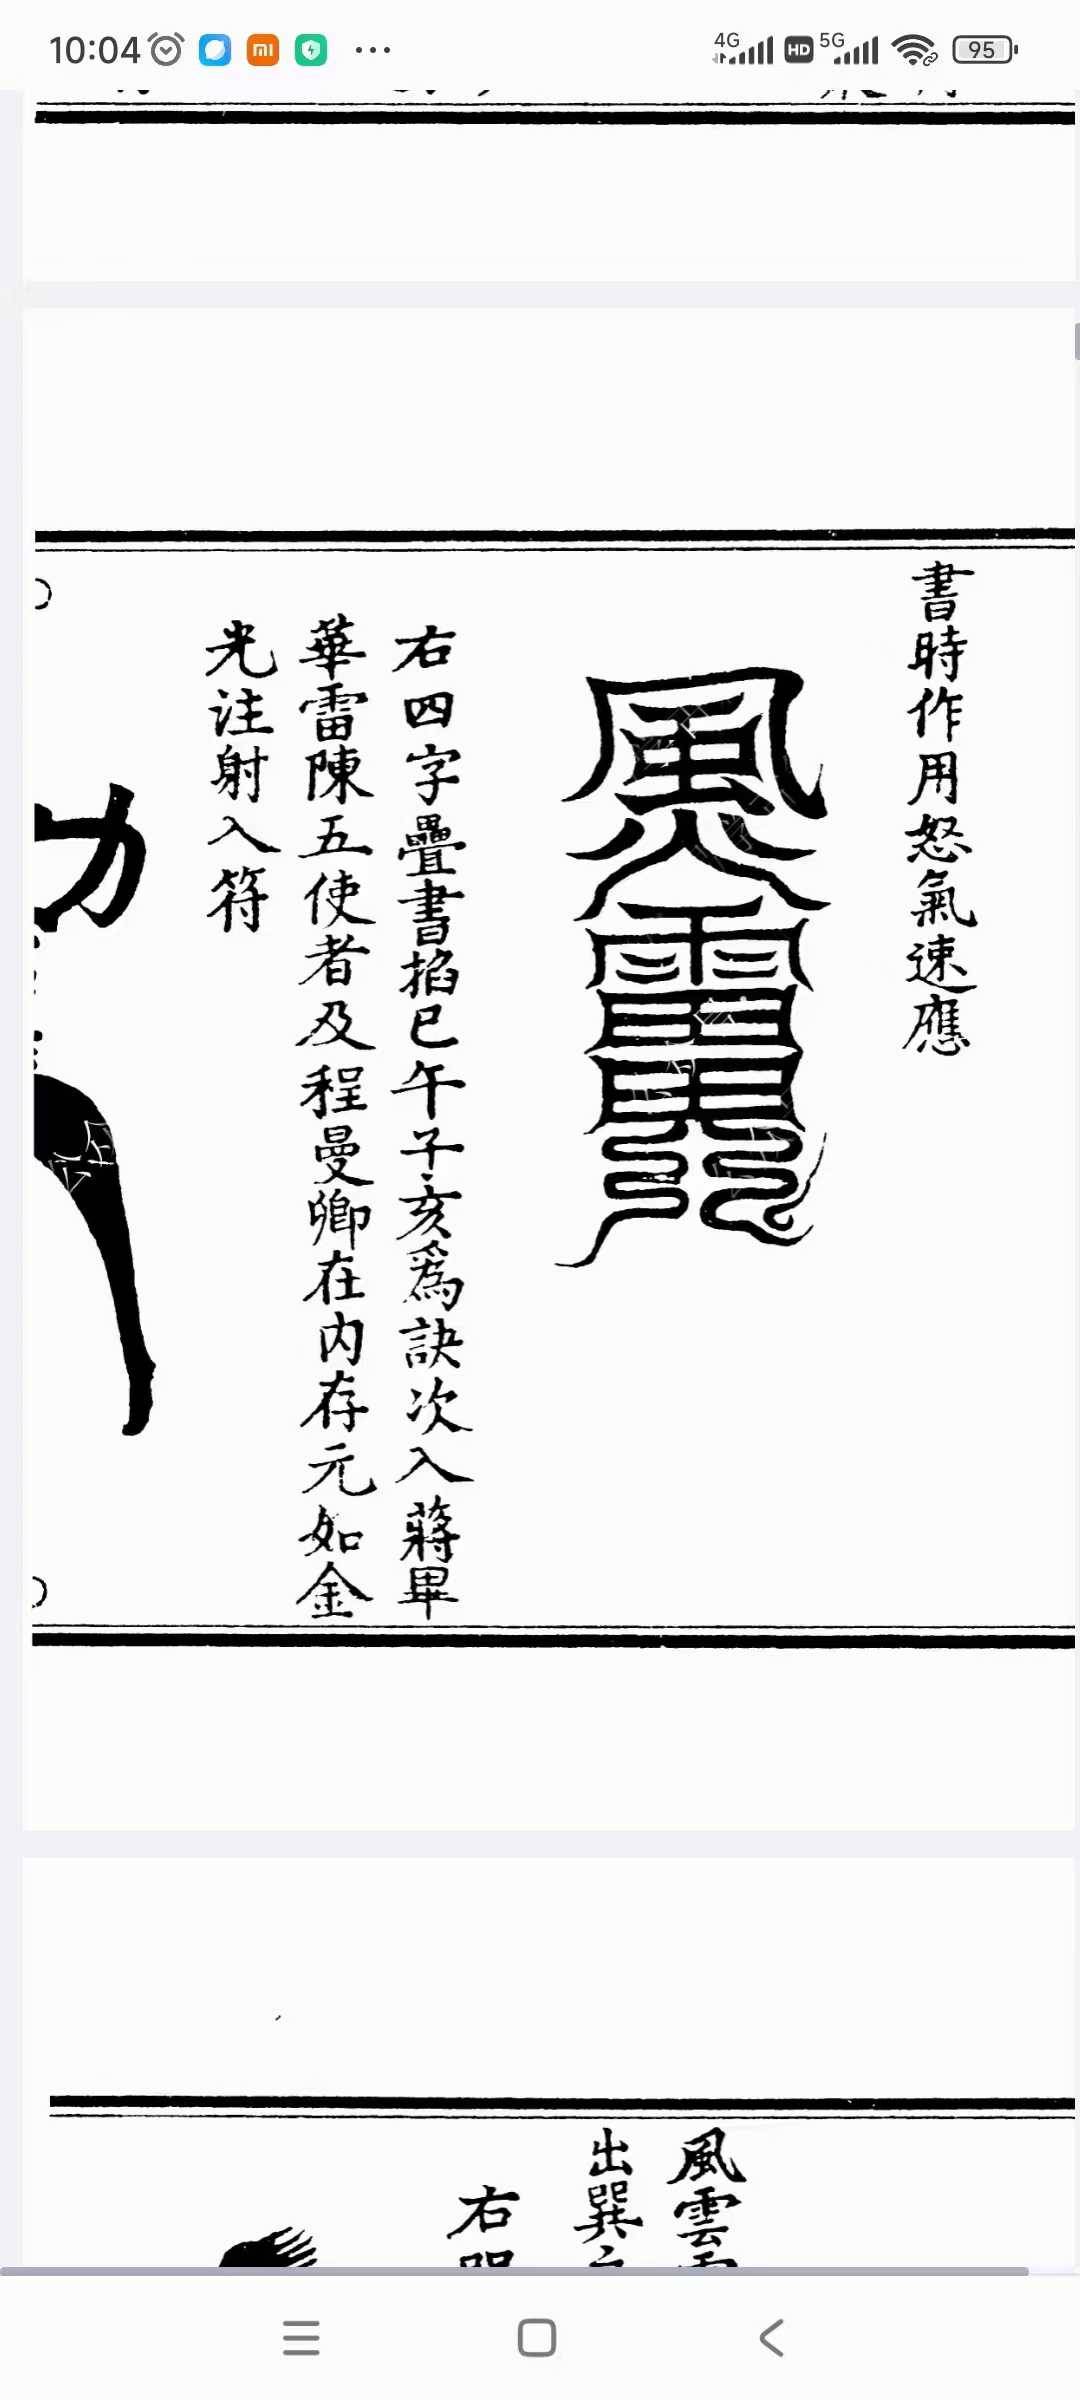 10:04
4G
HD
5G
95
書時作用怒氣速應
右四字疊書掐巳午子亥爲訣次入蔣畢
華雷陳五使者及程曼卿在内存元如金
光注射入符
風雲
出巽之
右